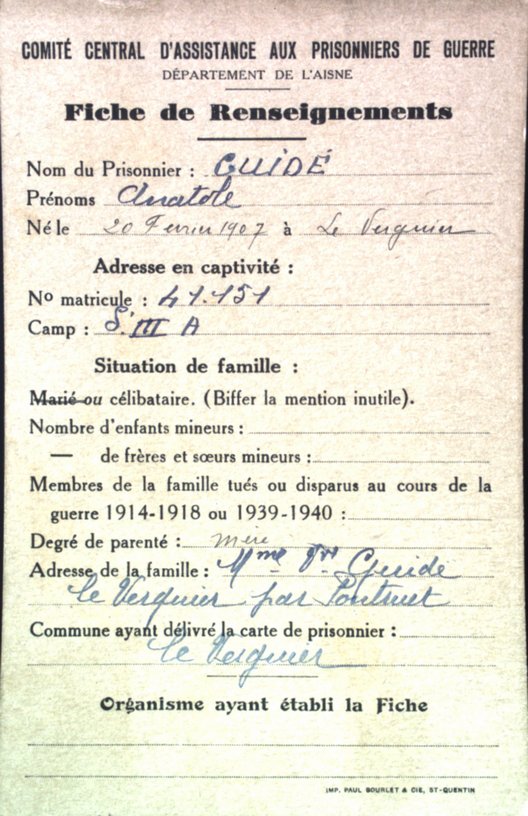 COMITÉ CENTRAL D'ASSISTANCE AUX PRISONNIERS DE GUERRE
DÉPARTEMENT DE L'AISNE
Fiche de Renseignements
Nom du Prisonnier : GUIDÉ
Prénoms Anatole
Né le 20 Fevrier 1907 à Le Verguier
Adresse en captivité :
No matricule : 41.151
Camp : S. III A
Situation de famille :
Marié ou célibataire. (Biffer la mention inutile).
Nombre d'enfants mineurs :
— de frères et sœurs mineurs :
Membres de la famille tués ou disparus au cours de la
guerre 1914-1918 ou 1939-1940 :
Degré de parenté : mère
Adresse de la famille : Mme Vve Guidé
le Verguier par Pontruet
Commune ayant délivré la carte de prisonnier :
le Verguier
Organisme ayant établi la Fiche
IMP. PAUL BOURLET & CIE, ST-QUENTIN